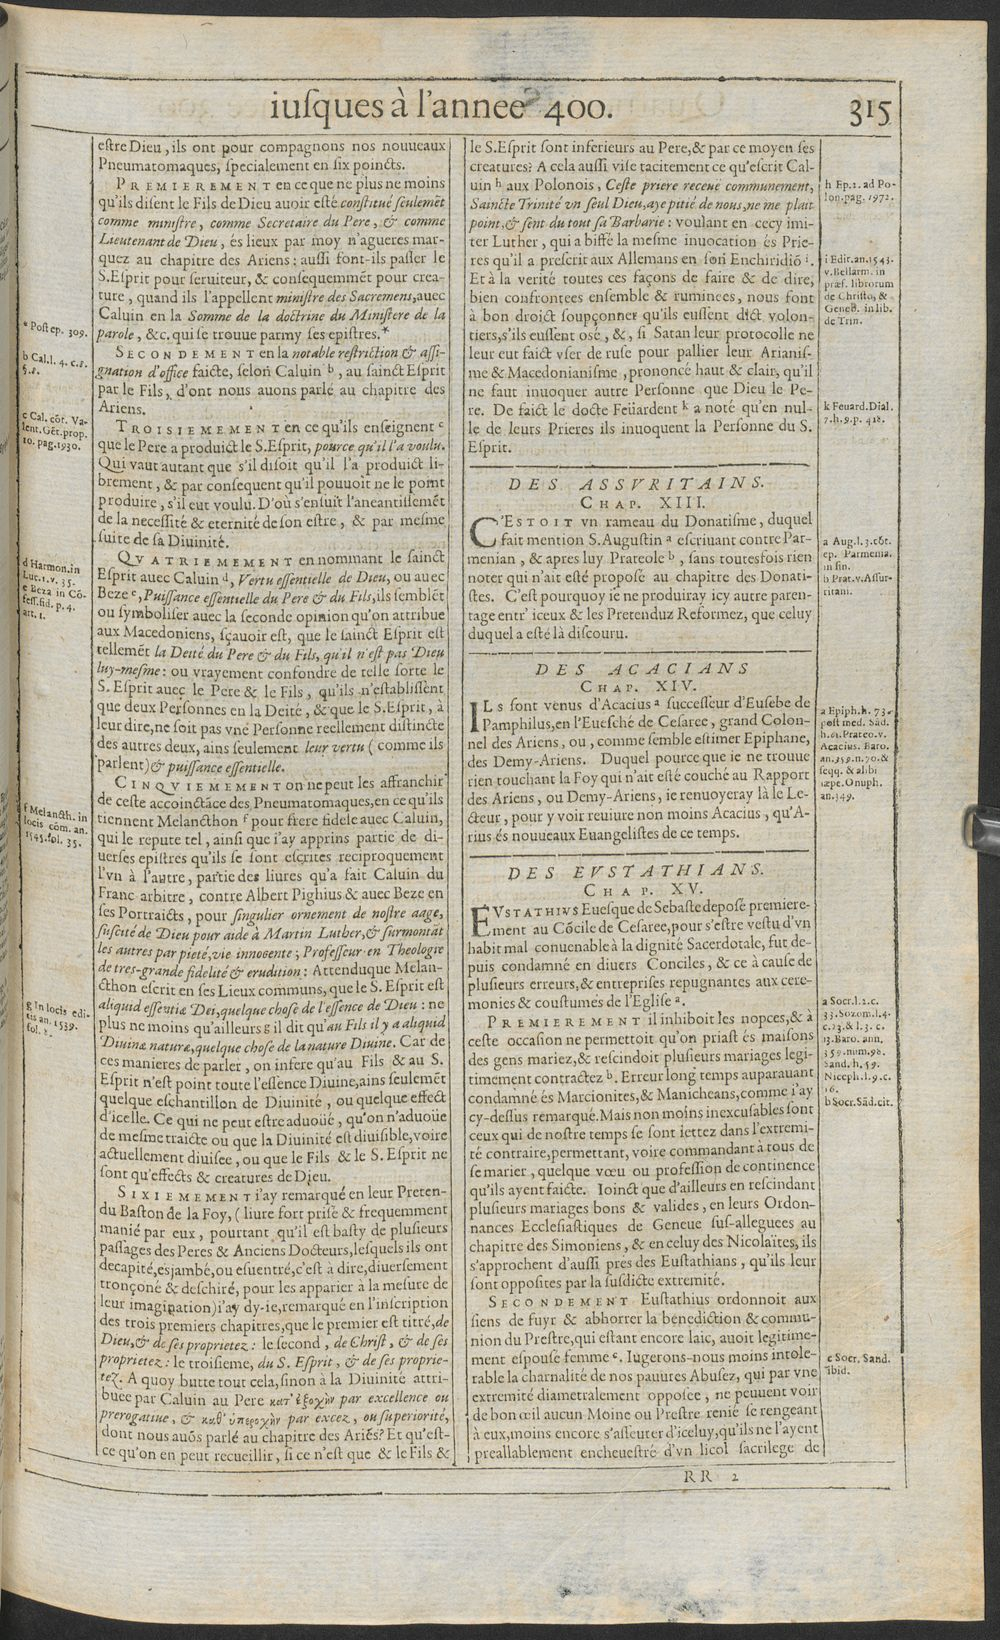 iusques à l'annee 400.
315
estre Dieu, ils ont pour compagnons nos nouueaux
Pneumatomaques, specialement en six poincts.
PREMIEREMENT en ce que ne plus ne moins
qu'ils disent le Fils de Dieu auoir esté constitué seulemēt
comme ministre, comme Secretaire du Pere, & comme
Lieutenant de Dieu, és lieux par moy n'agueres mar-
quez au chapitre des Ariens: aussi font-ils passer le
S.Esprit pour seruiteur, & consequemmēt pour crea-
ture, quand ils l'appellent ministre des Sacremens, auec
Caluin en la Somme de la doctrine du Ministere de la
parole, &c. qui se trouue parmy ses epistres.*
SECONDEMENT en la notable restriction & assi-
gnation d'office faicte, selon Caluin b, au sainct Esprit
par le Fils, d'ont nous auons parlé au chapitre des
Ariens.
TROISIEMEMENT en ce qu'ils enseignent c
que le Pere a produict le S.Esprit, pource qu'il l'a voulu.
Qui vaut autant que s'il disoit qu'il l'a produict li-
brement, & par consequent qu'il pouuoit ne le point
produire, s'il eut voulu. D'où s'ensuit l'aneantissemēt
de la necessité & eternité de son estre, & par mesme
suite de sa Diuinité.
QVATRIEMEMENT en nommant le sainct
Esprit auec Caluin d, Vertu essentielle de Dieu, ou auec
Beze e, Puissance essentielle du Pere & du Fils, ils semblēt
ou symboliser auec la seconde opinion qu'on attribue
aux Macedoniens, sçauoir est, que le sainct Esprit est
tellemēt la Deité du Pere & du Fils, qu'il n'est pas Dieu
luy-mesme: ou vrayement confondre de telle sorte le
S. Esprit auec le Pere & le Fils, qu'ils n'establissent
que deux Personnes en la Deité, & que le S.Esprit, à
leur dire, ne soit pas vne Personne reellement distincte
des autres deux, ains seulement leur vertu (comme ils
parlent) & puissance essentielle.
CINQVIEMEMENT on ne peut les affranchir
de ceste accoinctāce des Pneumatomaques, en ce qu'ils
tiennent Melancthon f pour frere fidele auec Caluin,
qui le repute tel, ainsi que i'ay apprins partie de di-
uerses epistres qu'ils se sont escrites reciproquement
l'vn à l'autre, partie des liures qu'a fait Caluin du
Franc arbitre, contre Albert Pighius & auec Beze en
ses Portraicts, pour singulier ornement de nostre aage,
suscité de Dieu pour aide à Martin Luther, & surmontāt
les autres par pieté, vie innocente; Professeur en Theologie
de tres-grande fidelité & erudition: Attenduque Melan-
cthon escrit en ses Lieux communs, que le S. Esprit est
aliquid essentiæ Dei, quelque chose de l'essence de Dieu: ne
plus ne moins qu'ailleurs g il dit qu'au Fils il y a aliquid
Diuinæ naturæ, quelque chose de la nature Diuine. Car de
ces manieres de parler, on infere qu'au Fils & au S.
Esprit n'est point toute l'essence Diuine, ains seulemēt
quelque eschantillon de Diuinité, ou quelque effect
d'icelle. Ce qui ne peut estre aduoüé, qu'on n'aduoüe
de mesme traicte ou que la Diuinité est diuisible, voire
actuellement diuisee, ou que le Fils & le S. Esprit ne
sont qu'effects & creatures de Dieu.
SIXIEMEMENT i'ay remarqué en leur Preten-
du Baston de la Foy, (liure fort prisé & frequemment
manié par eux, pourtant qu'il est basty de plusieurs
passages des Peres & Anciens Docteurs, lesquels ils ont
decapité, esjambé, ou esuentré, c'est à dire, diuersement
tronçoné & deschiré, pour les apparier à la mesure de
leur imagination) i'ay dy-ie, remarqué en l'inscription
des trois premiers chapitres, que le premier est titré, de
Dieu, & de ses proprietez: le second, de Christ, & de ses
proprietez: le troisieme, du S. Esprit, & de ses proprie-
tez. A quoy butte tout cela, sinon à la Diuinité attri-
buée par Caluin au Pere κατ' ἐξοχὴν par excellence ou
prerogatiue, & καθ' ὑπεροχὴν par excez, ou superiorité,
dont nous auōs parlé au chapitre des Ariēs? Et qu'est-
ce qu'on en peut recueillir, si ce n'est que & le Fils &
* Post ep. 309.
b Cal.l. 4. c.8.
s.8.
c Cal. cōt. Va-
lent. Gēt. prop.
10. pag. 1930.
d Harmon. in
Luc. 1. v. 35.
e Beza in Cō-
fess. fid. p. 4.
art. 1.
f Melancth. in
locis cōm. an.
1545. fol. 35.
g In locis edi-
tis an. 1539.
fol. 8.
le S.Esprit sont inferieurs au Pere, & par ce moyen ses
creatures? A cela aussi vise tacitement ce qu'escrit Cal-
uin h aux Polonois, Ceste priere receuë communement,
Saincte Trinité vn seul Dieu, aye pitié de nous, ne me plait
point, & sent du tout sa Barbarie: voulant en cecy imi-
ter Luther, qui a biffé la mesme inuocation és Prie-
res qu'il a prescrit aux Allemans en son Enchiridiō i.
Et à la verité toutes ces façons de faire & de dire,
bien confrontees ensemble & ruminees, nous font
à bon droict soupçonner qu'ils eussent dict volon-
tiers, s'ils eussent osé, &, si Satan leur protocolle ne
leur eut faict vser de ruse pour pallier leur Arianis-
me & Macedonianisme, prononcé haut & clair, qu'il
ne faut inuoquer autre Personne que Dieu le Pe-
re. De faict le docte Feüardent k a noté qu'en nul-
le de leurs Prieres ils inuoquent la Personne du S.
Esprit.
DES ASSVRITAINS.
CHAP. XIII.
C'ESTOIT vn rameau du Donatisme, duquel
fait mention S. Augustin a escriuant contre Par-
menian, & apres luy Prateole b, sans toutesfois rien
noter qui n'ait esté proposé au chapitre des Donati-
stes. C'est pourquoy ie ne produiray icy autre paren-
tage entr' iceux & les Pretenduz Reformez, que celuy
duquel a esté là discouru.
DES ACACIANS
CHAP. XIV.
ILs sont venus d'Acacius a successeur d'Eusebe de
Pamphilus, en l'Euesché de Cesaree, grand Colon-
nel des Ariens, ou, comme semble estimer Epiphane,
des Demy-Ariens. Duquel pource que ie ne trouue
rien touchant la Foy qui n'ait esté couché au Rapport
des Ariens, ou Demy-Ariens, ie renuoyeray là le Le-
cteur, pour y voir reuiure non moins Acacius, qu'A-
rius és nouueaux Euangelistes de ce temps.
DES EVSTATHIANS.
CHAP. XV.
EVSTATHIVS Euesque de Sebaste deposé premiere-
ment au Cōcile de Cesaree, pour s'estre vestu d'vn
habit mal conuenable à la dignité Sacerdotale, fut de-
puis condamné en diuers Conciles, & ce à cause de
plusieurs erreurs, & entreprises repugnantes aux cere-
monies & coustumes de l'Eglise a.
PREMIEREMENT il inhiboit les nopces, & à
ceste occasion ne permettoit qu'on priast és maisons
des gens mariez, & rescindoit plusieurs mariages legi-
timement contractez b. Erreur long temps auparauant
condamné és Marcionites, & Manicheans, comme i'ay
cy-dessus remarqué. Mais non moins inexcusables sont
ceux qui de nostre temps se sont iettez dans l'extremi-
té contraire, permettant, voire commandant à tous de
se marier, quelque vœu ou profession de continence
qu'ils ayent faicte. Ioinct que d'ailleurs en rescindant
plusieurs mariages bons & valides, en leurs Ordon-
nances Ecclesiastiques de Geneue sus-alleguees au
chapitre des Simoniens, & en celuy des Nicolaïtes, ils
s'approchent d'aussi pres des Eustathians, qu'ils leur
sont opposites par la susdicte extremité.
SECONDEMENT Eustathius ordonnoit aux
siens de fuyr & abhorrer la benediction & commu-
nion du Prestre, qui estant encore laic, auoit legitime-
ment espousé femme c. Iugerons-nous moins intole-
rable la charnalité de nos pauures Abusez, qui par vne
extremité diametralement opposee, ne peuuent voir
de bon œil aucun Moine ou Prestre renié se rengeant
à eux, moins encore s'asseuter d'iceluy, qu'ils ne l'ayent
preallablement encheuestré d'vn licol sacrilege de
h Ep.2. ad Po-
lon. pag. 1972.
i Edit. an. 1543.
v. Bellarm. in
præf. librorum
de Christo, &
Geneb. in lib.
de Trin.
k Feuard. Dial.
7. h. 9. p. 418.
a Aug. l. 3. cōt.
ep. Parmenia.
in fin.
b Prat. v. Assur-
ritani.
a Epiph. h. 73.
post med. Sād.
h. 61. Prateo. v.
Acacius. Baro.
an. 359. n. 70. &
seqq. & alibi
sæpe. Onuph.
an. 349.
a Socr. l. 2. c.
33. Sozom. l. 4.
c. 23. & l. 3. c.
13. Baro. ann.
359. num. 98.
Sand. h. 59.
Niceph. l. 9. c.
16.
b Socr. Sād. cit.
c Socr. Sand.
ibid.
RR 2